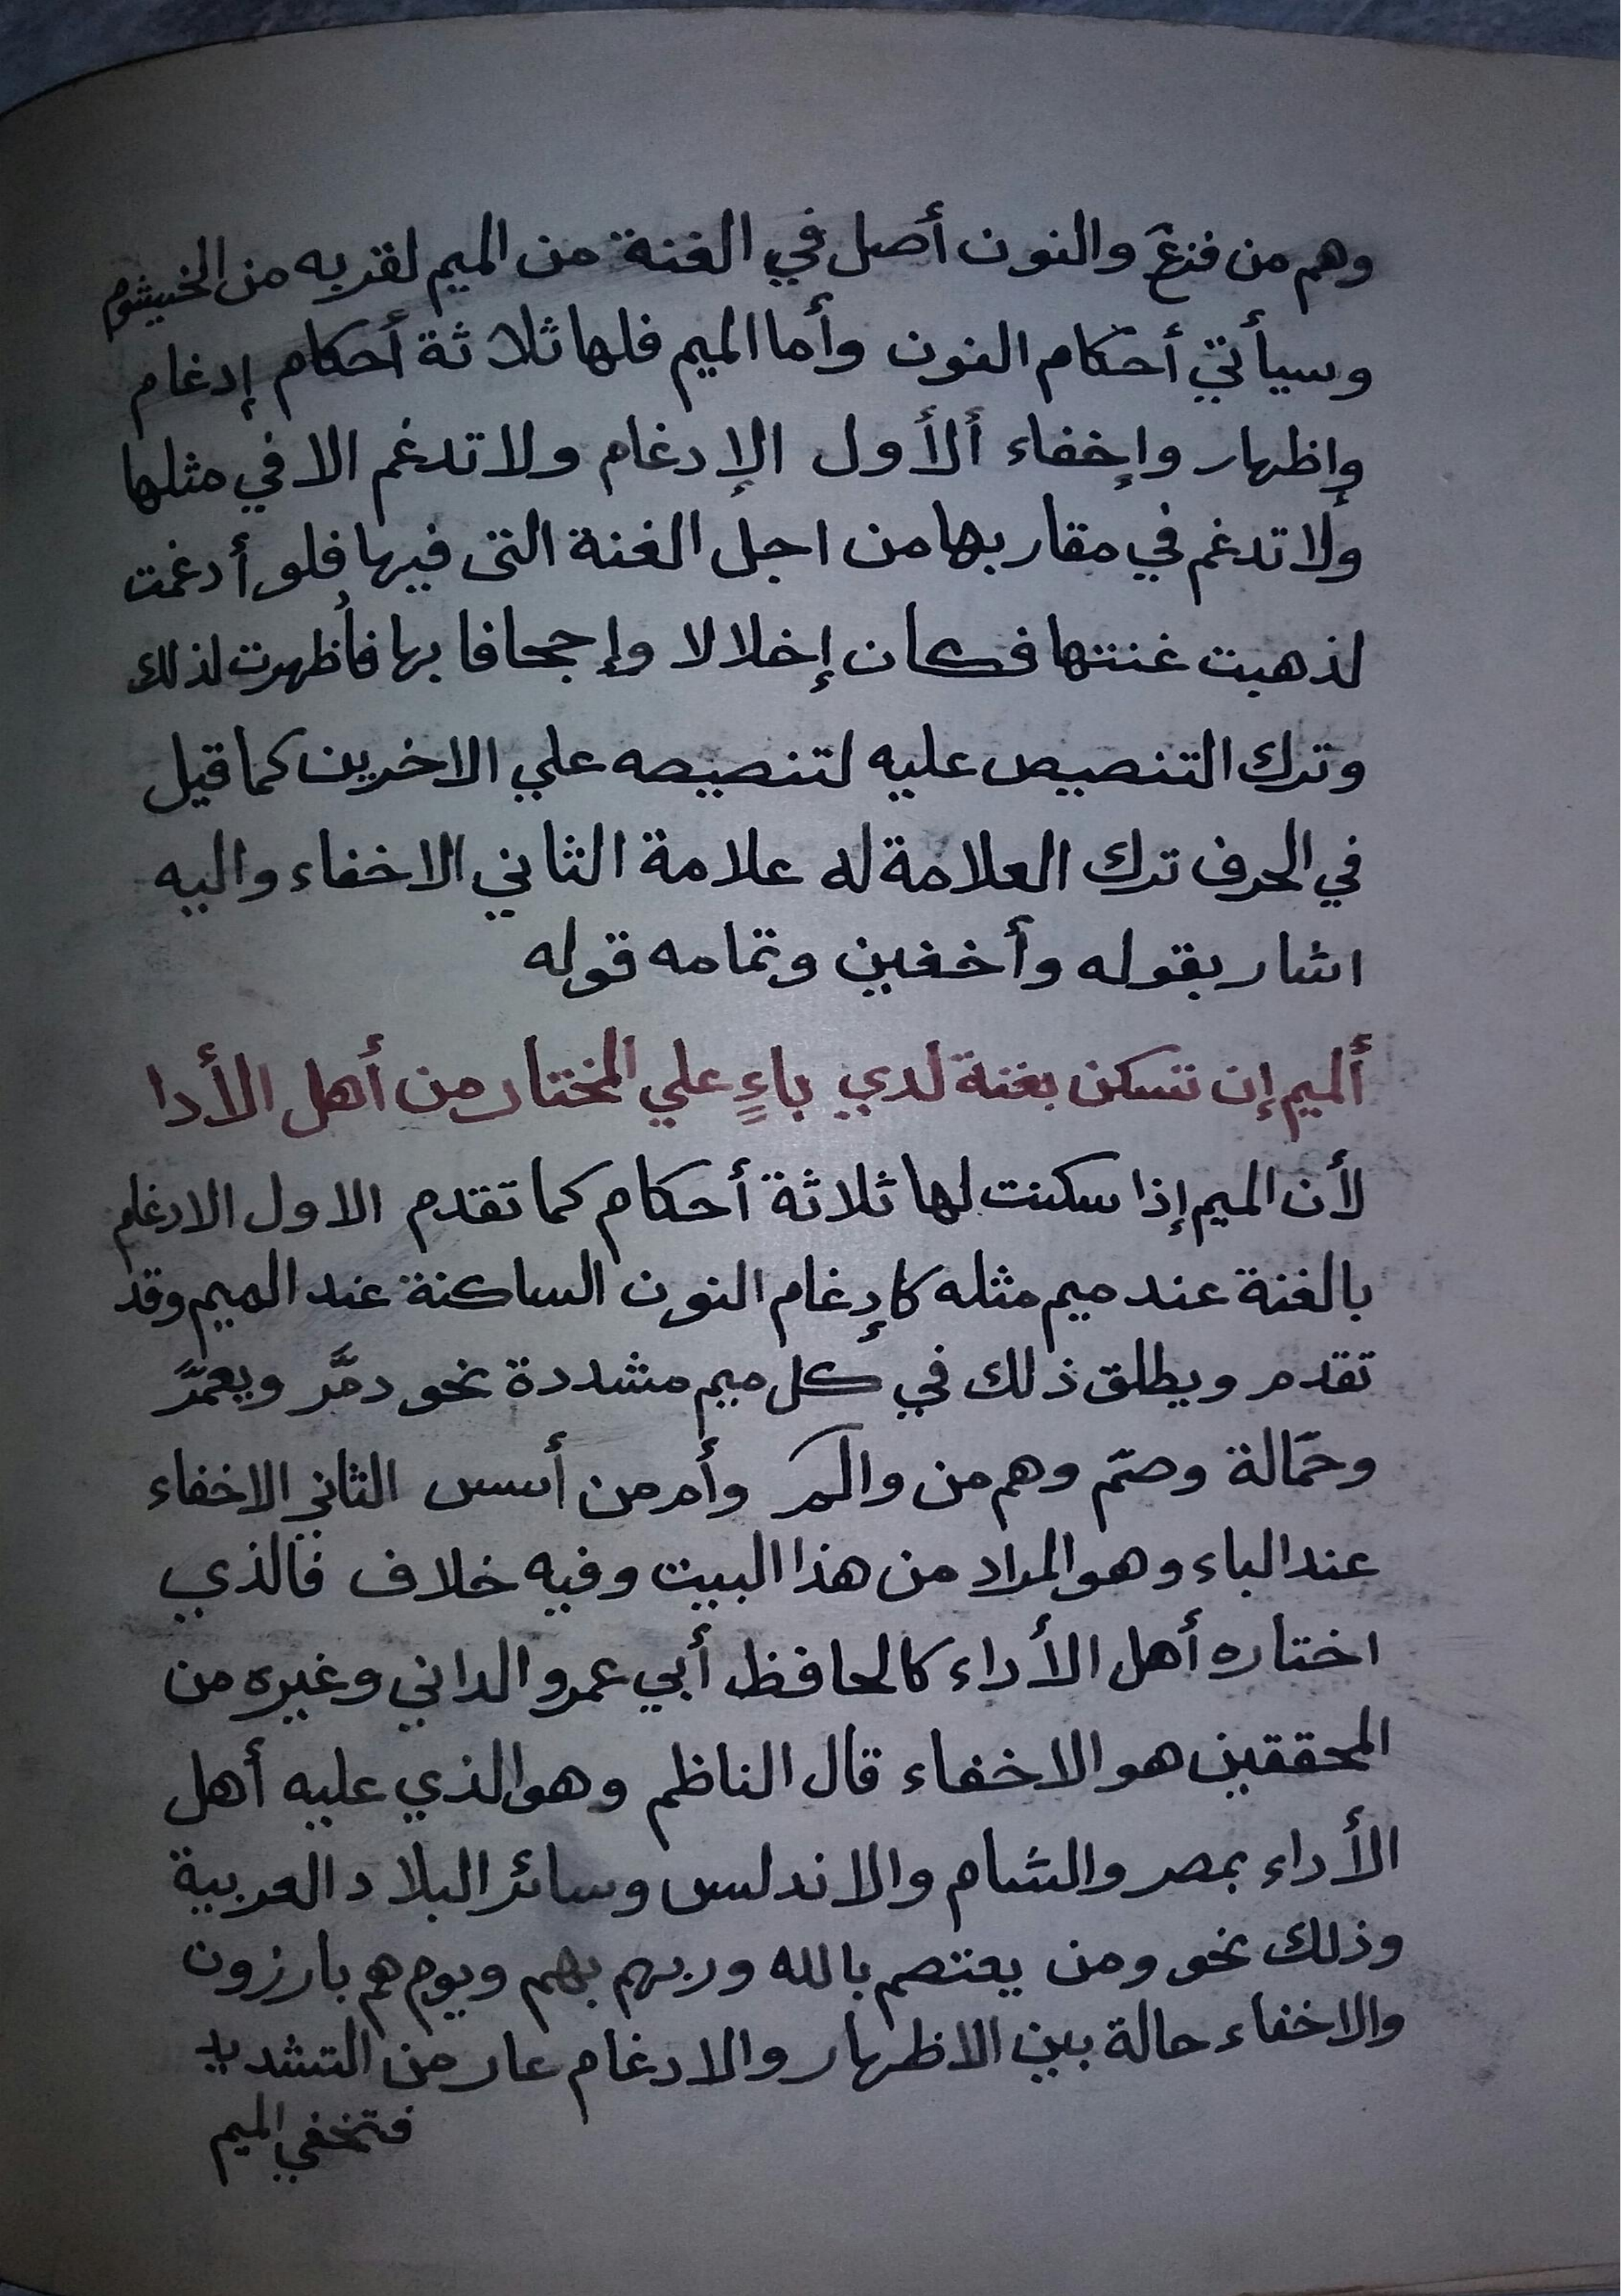 وهم من فزع والنون أصل في الغنة من الميم لقربه من الخيشوم
وسيأتي أحكام النون وأما الميم فلها ثلاثة أحكام إدغام
وإظهار وإخفاء ألأول الإدغام ولا تدغم الا في مثلها
ولا تدغم في مقاربها من اجل الغنة التى فيها فلو أدغمت
لذهبت غنتها فكان إخلالا وإجحافا بها فأظهرت لذلك
وترك التنصيص عليه لتنصيصه علي الاخرين كما قيل
في الحرف ترك العلامة له علامة الثاني الاخفاء واليه
اشار بقوله وأخفين وتمامه قوله
ألميم إن تسكن بغنة لدي باءٍ علي المختار من أهل الأدا
لأن الميم إذا سكنت لها ثلاثة أحكام كما تقدم الاول الادغام
بالغنة عند ميم مثله كإدغام النون الساكنة عند الميم وقد
تقدم ويطلق ذلك في كل ميم مشددة نحو دمَّر ويعمَّر
وحمّالة وصمّ وهم من والمّ وأم من أسس الثاني الاخفاء
عند الباء وهو المراد من هذا البيت وفيه خلاف فالذي
اختاره أهل الأداء كالحافظ أبي عمرو الداني وغيره من
المحققين هو الاخفاء قال الناظم وهو الذي عليه أهل
الأداء بمصر والشام والاندلس وسائر البلاد العربية
وذلك نحو ومن يعتصم بالله وربهم بهم ويوم هم بارزون
والاخفاء حالة بين الاظهار والادغام عار من التشديد
فتخفي الميم